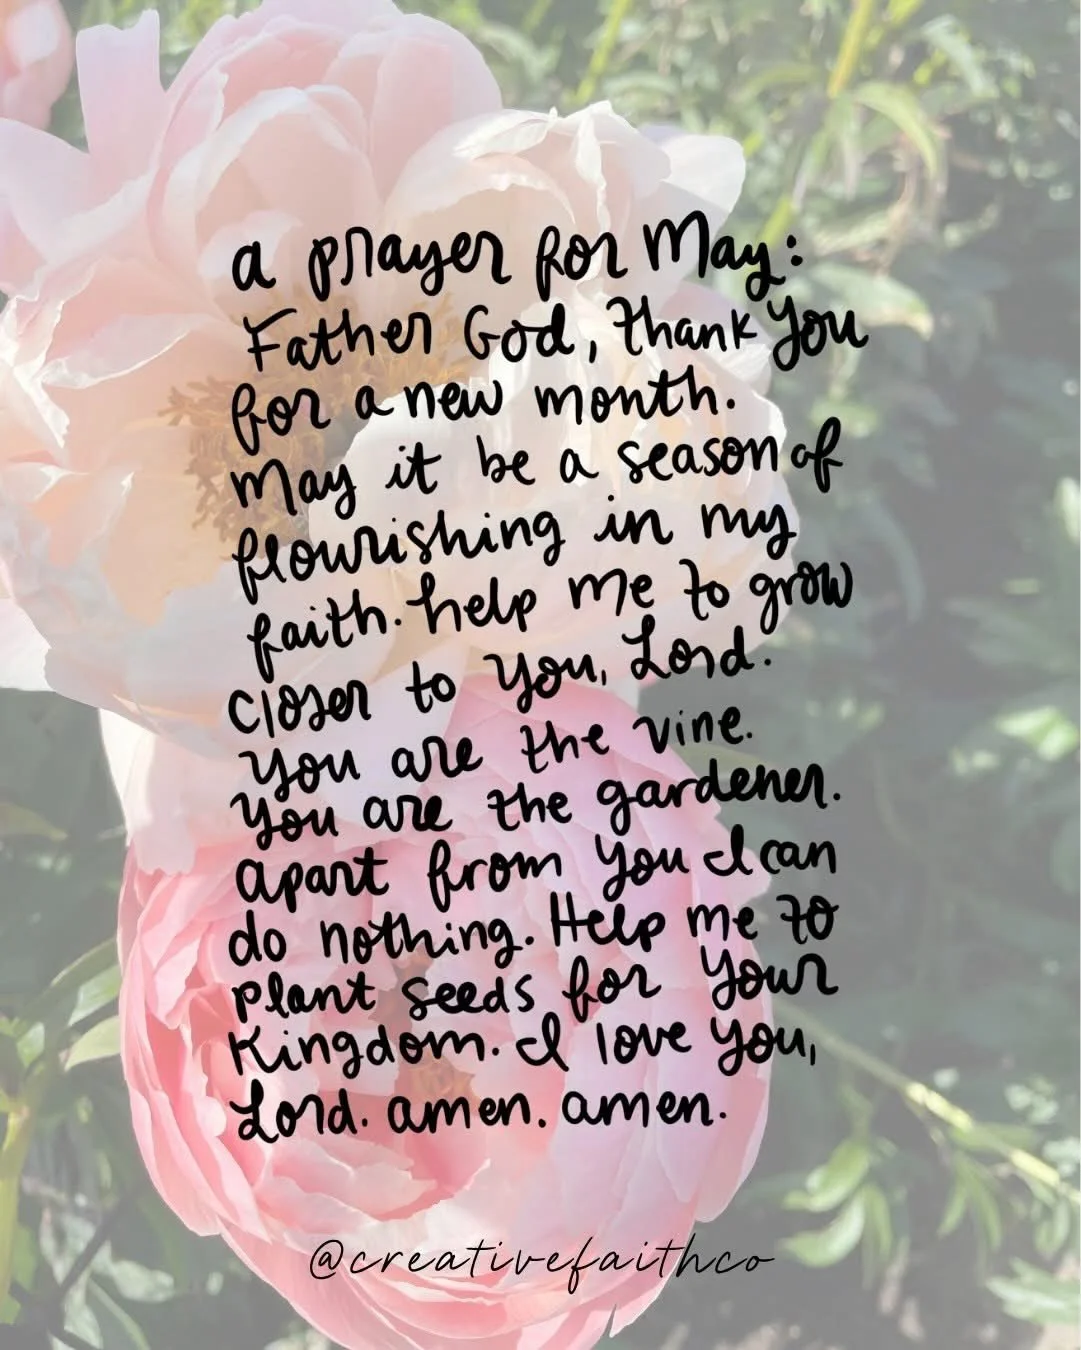 a prayer for May:
Father God, thank You
for a new month.
May it be a season of
flourishing in my
faith. help me to grow
closer to You, Lord.
You are the vine.
You are the gardener.
apart from You I can
do nothing. Help me to
plant seeds for Your
Kingdom. I love You,
Lord. amen. amen.
@creativefaithco